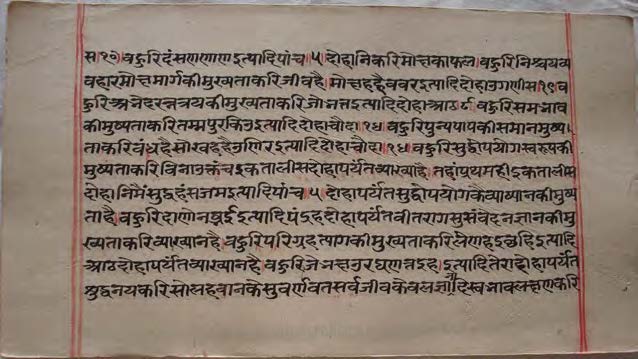 स १० । वहुरि दंसणणाण इत्यादि पांच ५ दोहानि करि मोक्ष का फल । वहुरि निश्चय व्य
वहार मोक्ष मार्ग की मुख्यता करि जीवहै । मोक्खहहै इत्यादि दोहा उगणीस १९ व
हुरि अभेद रत्नत्रय की मुख्यता करि जो भत्त इत्यादि दोहा आठ ८ वहुरि सम भाव
की मुष्यता करि इत्यादि दोहा चौदा । १४ वहुरि पुन्य पाप की समान मुष्य
ता करि वंधहै मोखहहै इत्यादि दोहा चौदा । १४ वहुरि सुद्धोपयोग स्वरूप की
मुष्यता करि इकतालीस दोहा पर्यंत व्याख्या है । तहां प्रथम ही इकतालीस
दोहानि मैं सुद्धहं संजम इत्यादि पांच ५ दोहा पर्यंत सुद्धोपयोग कै व्याष्यान की मुष्य
ता है । वहुरि दाणे इत्यादि पंद्रह दोहा पर्यंत वीतराग सुसंवेदन ज्ञान की मु
ख्यता करि व्याख्यान है । वहुरि परिग्रह त्याग की मुख्यता करि लेणहं इच्छहि इत्यादि
आठ दोहा पर्यंत व्याख्यान है । वहुरि जो भत्तउ रयणत्तइह । इत्यादि तेरा दोहा पर्यंत
शुद्ध नय करि सोलहवान के सुवर्णवत सर्व जीव केवल ज्ञानादि स्वभाव लक्षण करि